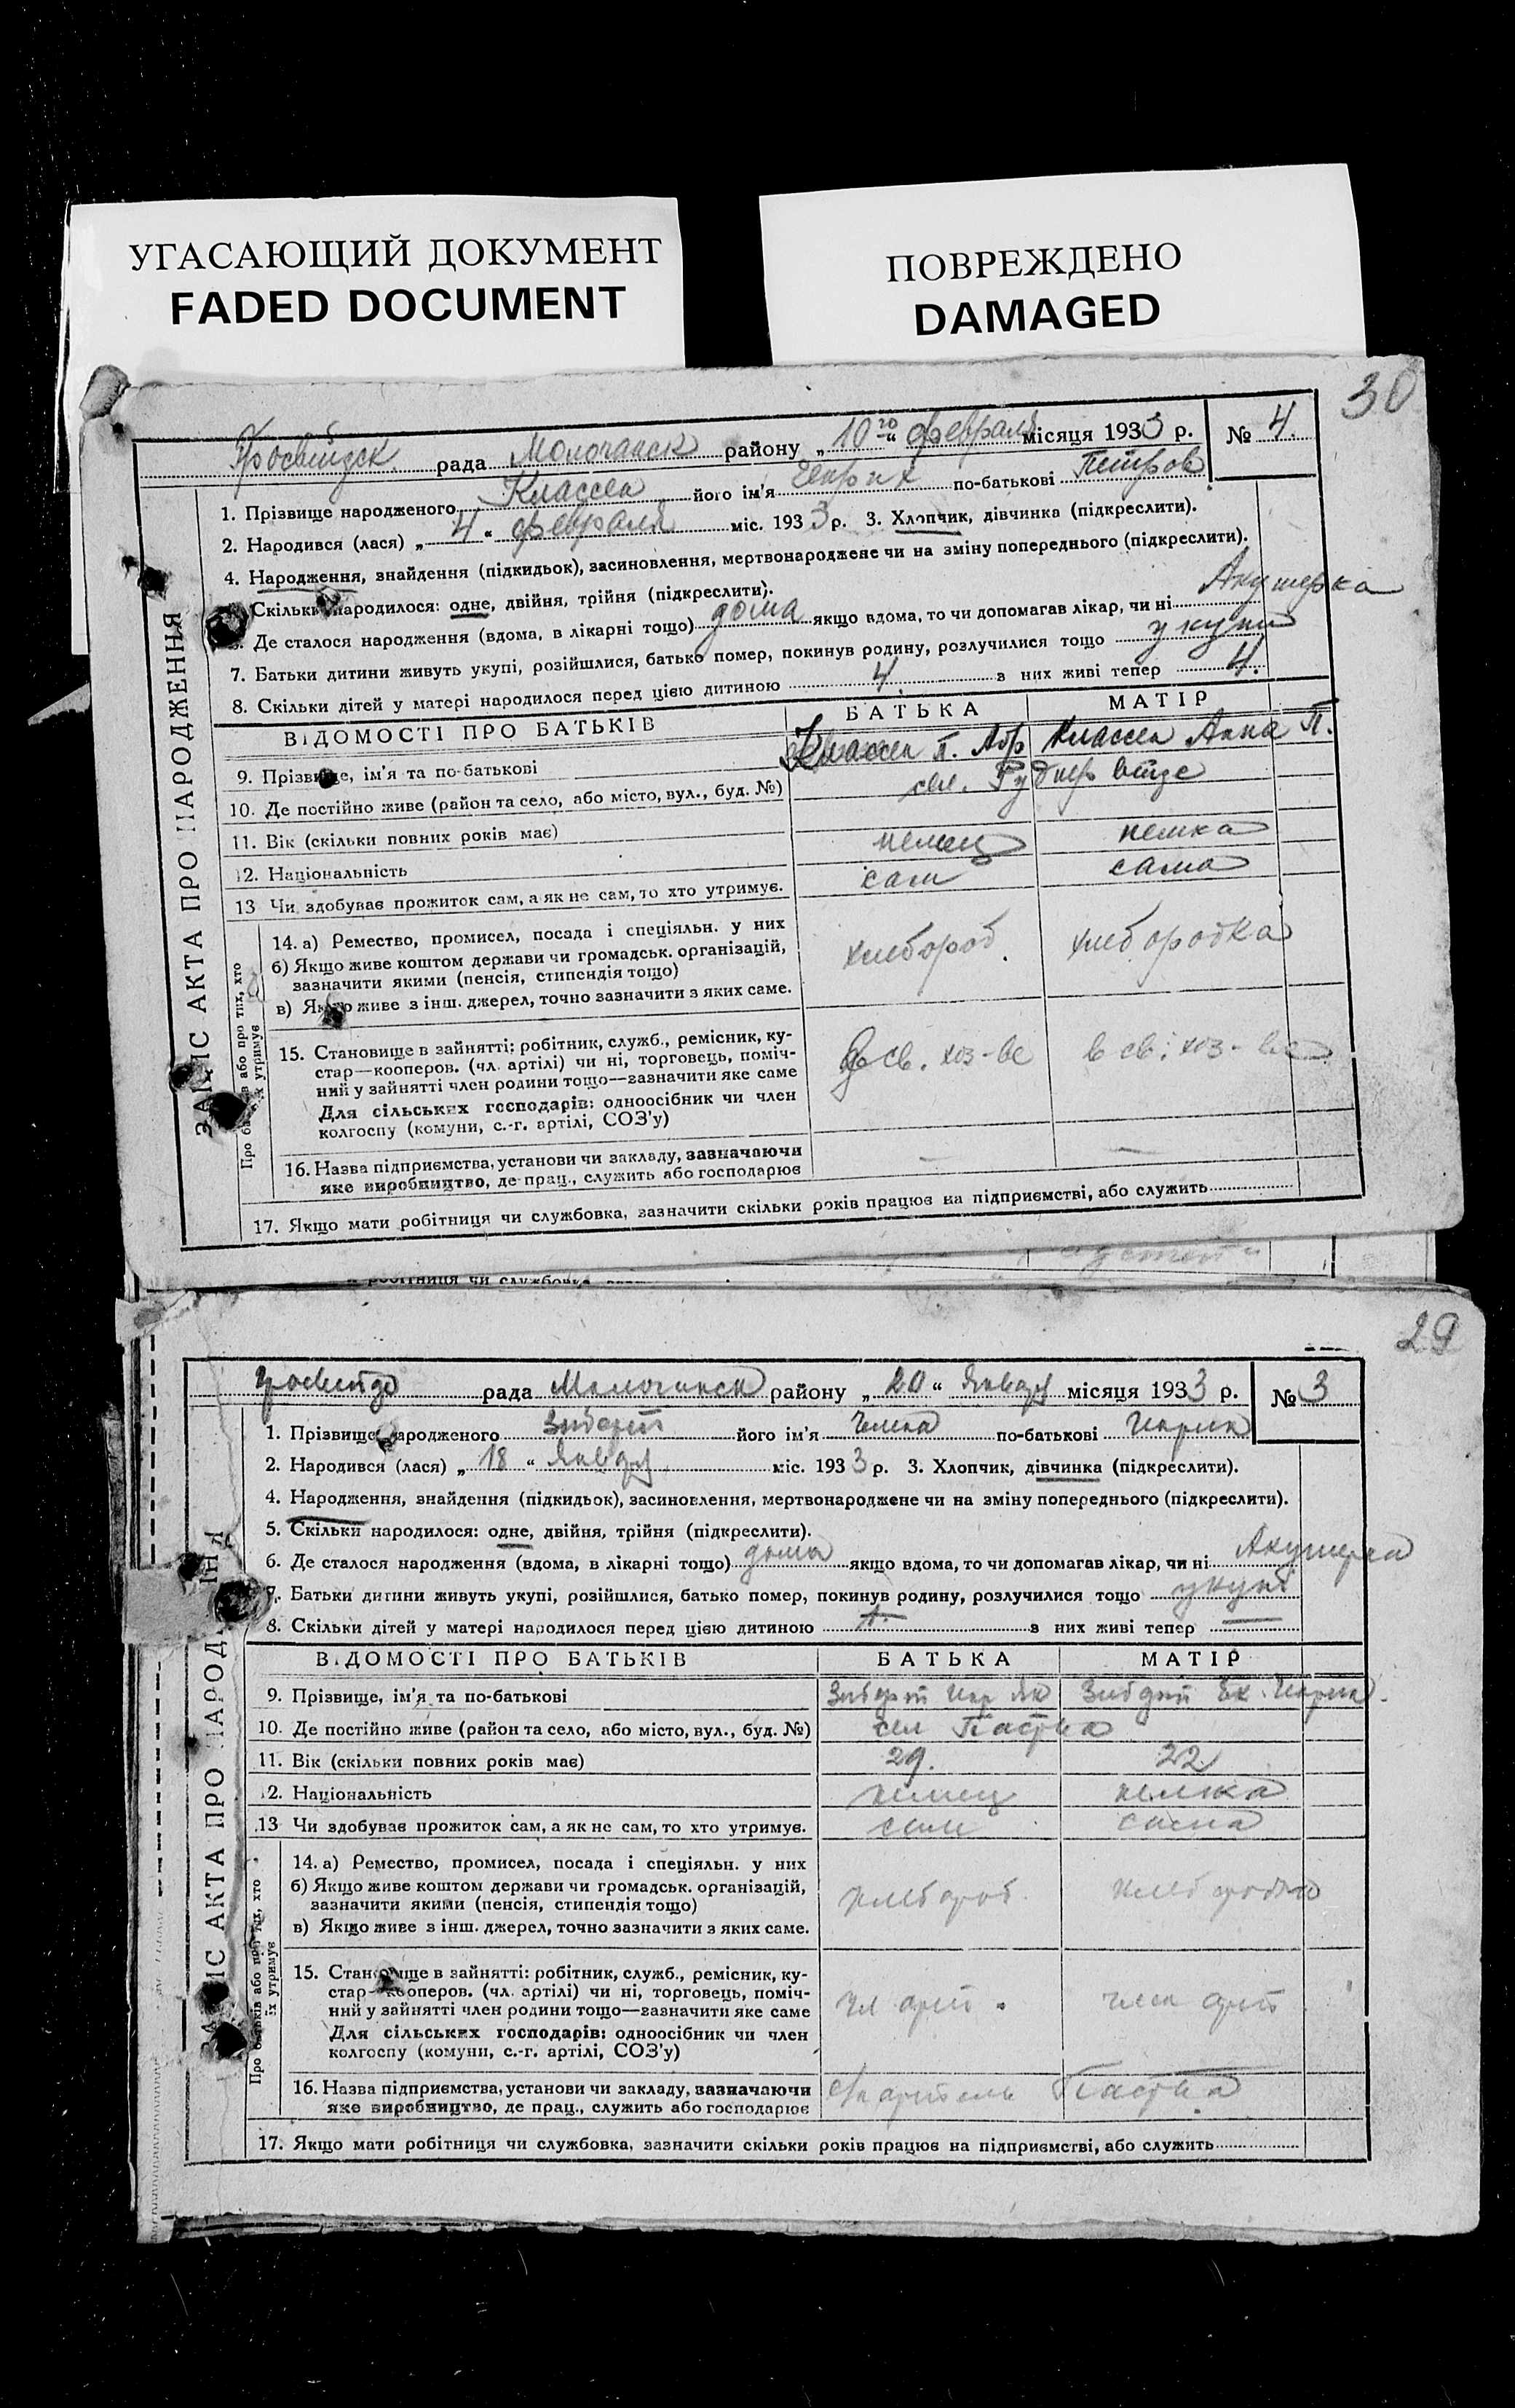 УГАСАЮЩИЙ ДОКУМЕНТ
FADED DOCUMENT
ПОВРЕЖДЕНО
DAMAGED
30
рада Молочанск району „10го“ февраля місяця 1933 р. № 4.
1. Прізвище народженого Классен його ім'я Генрих по-батькові Петров
2. Народився (лася) „4“ февраля міс. 1933 р. 3. Хлопчик, дівчинка (підкреслити).
4. Народження, знайдення (підкидьок), засиновлення, мертвонароджене чи на зміну попереднього (підкреслити).
Скільки народилося: одне, двійня, трійня (підкреслити).
Де сталося народження (вдома, в лікарні тощо) дома якщо вдома, то чи допомагав лікар, чи ні Акушерка
7. Батьки дитини живуть укупі, розійшлися, батько помер, покинув родину, розлучилися тощо укупі
8. Скільки дітей у матері народилося перед цією дитиною 4. з них живі тепер 4.
ВІДОМОСТІ ПРО БАТЬКІВ БАТЬКА МАТІР
9. Прізвище, ім'я та по-батькові Классен П. Абр Классен Анна П.
10. Де постійно живе (район та село, або місто, вул., буд. №) сел.
11. Вік (скільки повних років має)
12. Національність немец немка
13 Чи здобуває прожиток сам, а як не сам, то хто утримує. сам сама
14. а) Ремество, промисел, посада і спеціяльн. у них
б) Якщо живе коштом держави чи громадськ. організацій,
зазначити якими (пенсія, стипендія тощо)
хлебороб. хлеборобка
в) Якщо живе з інш. джерел, точно зазначити з яких саме.
15. Становище в зайнятті: робітник, служб., ремісник, ку-
стар—кооперов. (чл. артілі) чи ні, торговець, поміч-
ний у зайнятті член родини тощо—зазначити яке саме
в св. хоз-ве в св. хоз-ве
Для сільських господарів: одноосібник чи член
колгоспу (комуни, с.-г. артілі, СОЗ'у)
16. Назва підприємства, установи чи закладу, зазначаючи
яке виробництво, де прац., служить або господарює
— —
17. Якщо мати робітниця чи службовка, зазначити скільки років працює на підприємстві, або служить
ЗАПИС АКТА ПРО НАРОДЖЕННЯ
Про батьків або про тих, хто
їх утримує
робітниця чи службовка
29
рада Молочанск району „20“ Январ місяця 1933 р. № 3
1. Прізвище народженого його ім'я по-батькові
2. Народився (лася) „18“ Январ міс. 1933 р. 3. Хлопчик, дівчинка (підкреслити).
4. Народження, знайдення (підкидьок), засиновлення, мертвонароджене чи на зміну попереднього (підкреслити).
5. Скільки народилося: одне, двійня, трійня (підкреслити).
6. Де сталося народження (вдома, в лікарні тощо) дома якщо вдома, то чи допомагав лікар, чи ні Акушерка
7. Батьки дитини живуть укупі, розійшлися, батько помер, покинув родину, розлучилися тощо укупі
8. Скільки дітей у матері народилося перед цією дитиною з них живі тепер —
ВІДОМОСТІ ПРО БАТЬКІВ БАТЬКА МАТІР
9. Прізвище, ім'я та по-батькові
10. Де постійно живе (район та село, або місто, вул., буд. №) сел Паства
11. Вік (скільки повних років має) 29. 22
12. Національність немец немка
13 Чи здобуває прожиток сам, а як не сам, то хто утримує. сам сама
14. а) Ремество, промисел, посада і спеціяльн. у них
б) Якщо живе коштом держави чи громадськ. організацій,
зазначити якими (пенсія, стипендія тощо)
хлебороб. хлеборобка
в) Якщо живе з інш. джерел, точно зазначити з яких саме.
15. Становище в зайнятті: робітник, служб., ремісник, ку-
стар—кооперов. (чл. артілі) чи ні, торговець, поміч-
ний у зайнятті член родини тощо—зазначити яке саме
чл арт. член арт
Для сільських господарів: одноосібник чи член
колгоспу (комуни, с.-г. артілі, СОЗ'у)
16. Назва підприємства, установи чи закладу, зазначаючи
яке виробництво, де прац., служить або господарює
Паства
17. Якщо мати робітниця чи службовка, зазначити скільки років працює на підприємстві, або служить
ЗАПИС АКТА ПРО НАРОД
Про батьків або про тих, хто
їх утримує